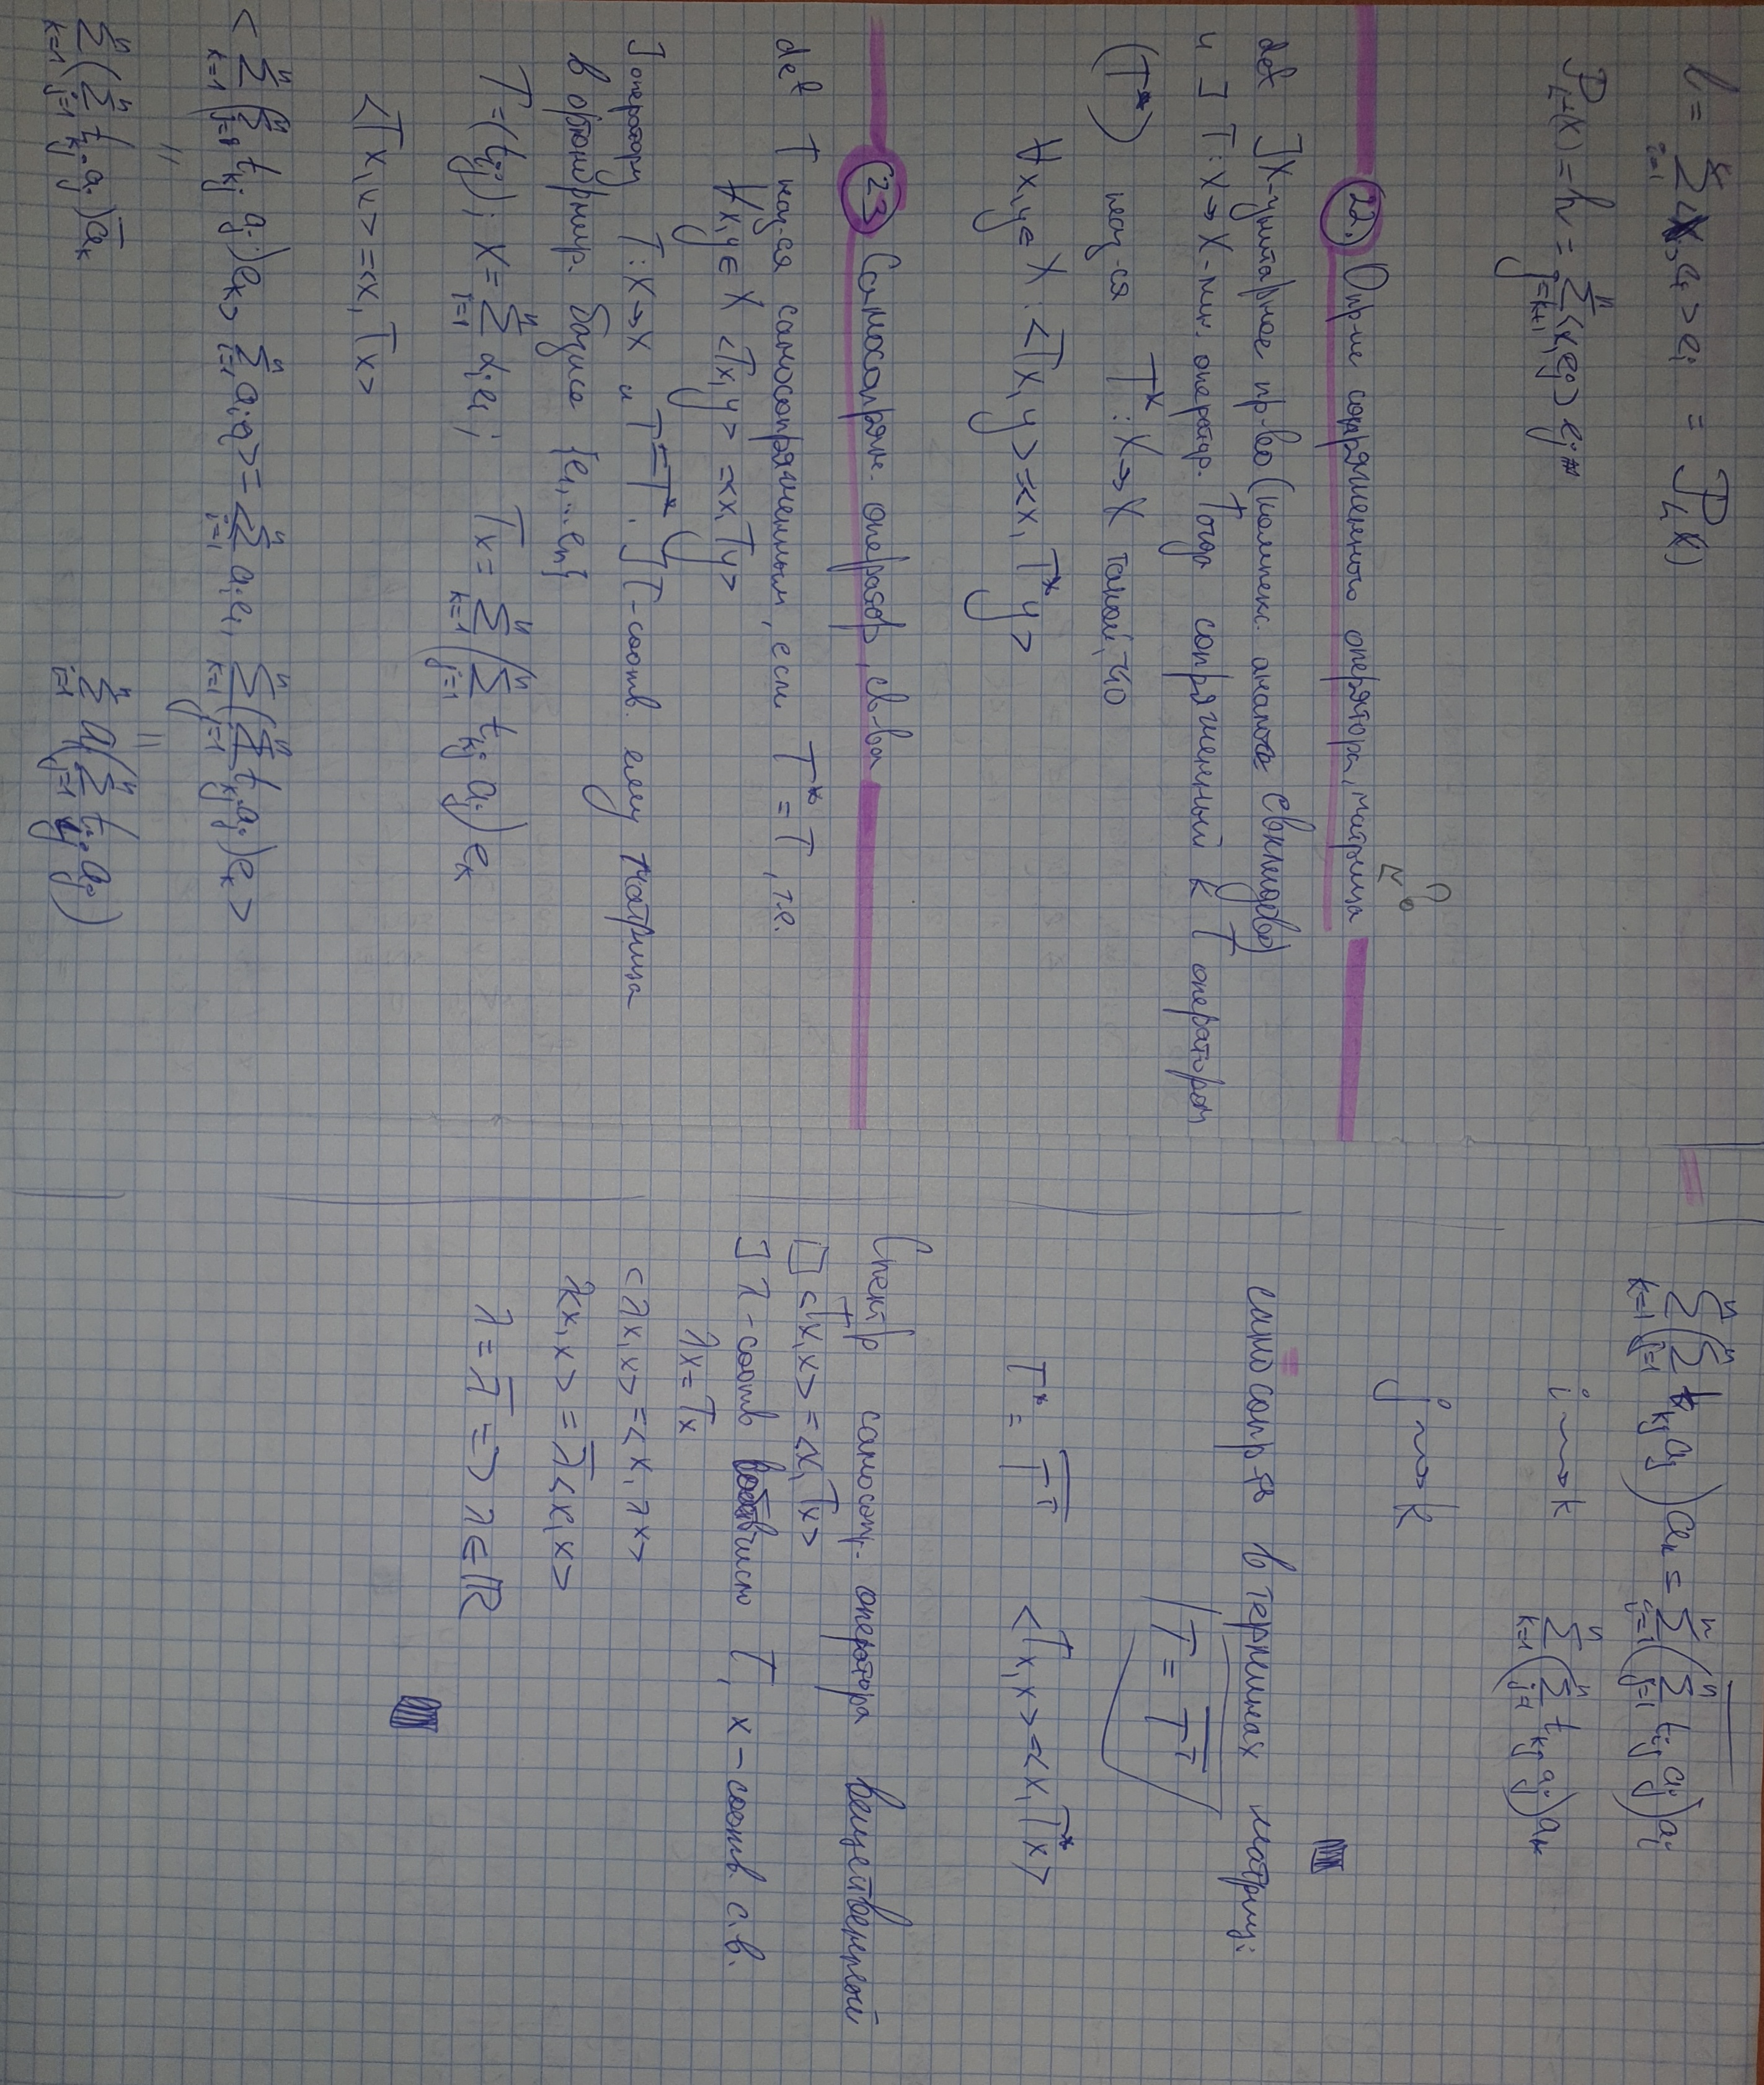 l = Σ_{i=1}^{k} <x, e_i> e_i = P_L(x)
P_{L⊥}(x) = h = Σ_{j=k+1}^{n} <x, e_j> e_j
22. Опр-ие сопряженного оператора, матрица
def ] X-унитарное пр-во (комплекс. аналог евклидова)
и ] T: X→X - лин. оператор. Тогда сопряженный к T оператором
(T*) наз-ся T*: X→X такой, что
∀x,y ∈ X : <Tx, y> = <x, T*y>
23 Самосопряж. оператор, св-ва
def T наз-ся самосопряженным, если T* = T, т.е.
∀x,y ∈ X <Tx, y> = <x, Ty>
] оператору T: X→X и T = T*. ] T - соотв. ему матрица
в ортонормир. базисе {e_1, ... e_n}
T = (t_{ij}); X = Σ_{i=1}^{n} α_i e_i; Tx = Σ_{k=1}^{n} (Σ_{j=1}^{n} t_{kj} a_j) e_k
<Tx, x> = <x, Tx>
< Σ_{k=1}^{n} (Σ_{j=1}^{n} t_{kj} a_j) e_k, Σ_{i=1}^{n} a_i e_i > = < Σ_{i=1}^{n} a_i e_i, Σ_{k=1}^{n} (Σ_{j=1}^{n} t_{kj} a_j) e_k >
" "
Σ_{k=1}^{n} (Σ_{j=1}^{n} t_{kj} a_j) \overline{a_k} Σ_{i=1}^{n} a_i (Σ_{j=1}^{n} t_{ij} a_j)
Σ_{k=1}^{n} (Σ_{j=1}^{n} t_{kj} a_j) a_k = Σ_{i=1}^{n} (Σ_{j=1}^{n} t_{ij} a_j) a_i
i ~> k Σ_{k=1}^{n} (Σ_{j=1}^{n} t_{kj} a_j) a_k
j ~> k
самосопр-ть в терминах матриц:
T = \overline{T^T}
T* = \overline{T^T} <Tx, x> = <x, T*x>
Спектр самосопр. оператора вещественный
□ <Tx, x> = <x, Tx>
] λ - соотв числ T, x - соотв. с.в.
λx = Tx
<λx, x> = <x, λx>
λ<x, x> = \overline{λ}<x, x>
λ = \overline{λ} => λ ∈ ℝ